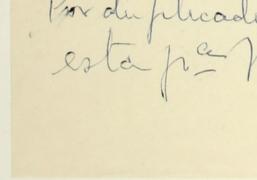 Por duplicado
esta pª